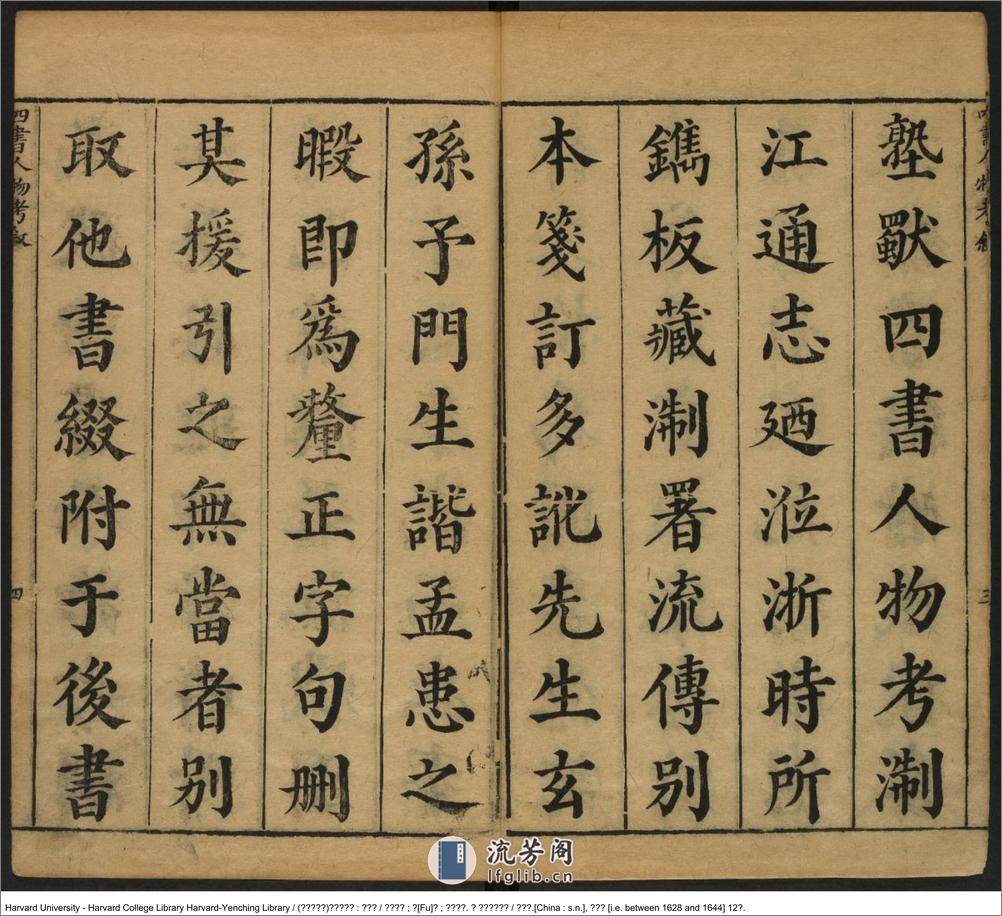 塾獻四書人物考淛
江通志廼涖浙時所
鐫板藏淛署流傳别
本箋訂多訛先生玄
孫予門生諧孟患之
暇即爲釐正字句删
其援引之無當者别
取他書綴附于後書
四書人物考敘
四
三
流芳阁
lfglib.cn
Harvard University - Harvard College Library Harvard-Yenching Library / (?????)????? : ??? / ???? ; ?[Fu]? ; ????. ? ?????? / ???.[China : s.n.], ??? [i.e. between 1628 and 1644] 12?.